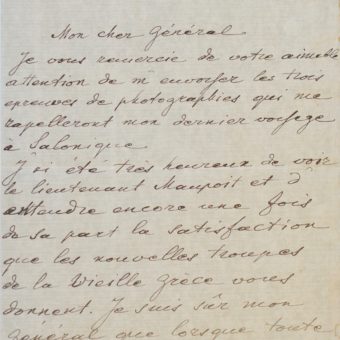 Mon cher Général
Je vous remercie de votre aimable
attention de m'envoyer les trois
épreuves de photographies qui me
rapelleront mon dernier voyage
à Salonique
J'ai été très heureux de voir
le lieutenant et d'
entendre encore une fois
de sa part la satisfaction
que les nouvelles troupes
de la Vieille Grèce vous
donnent. Je suis sûr mon
Général que lorsque toute